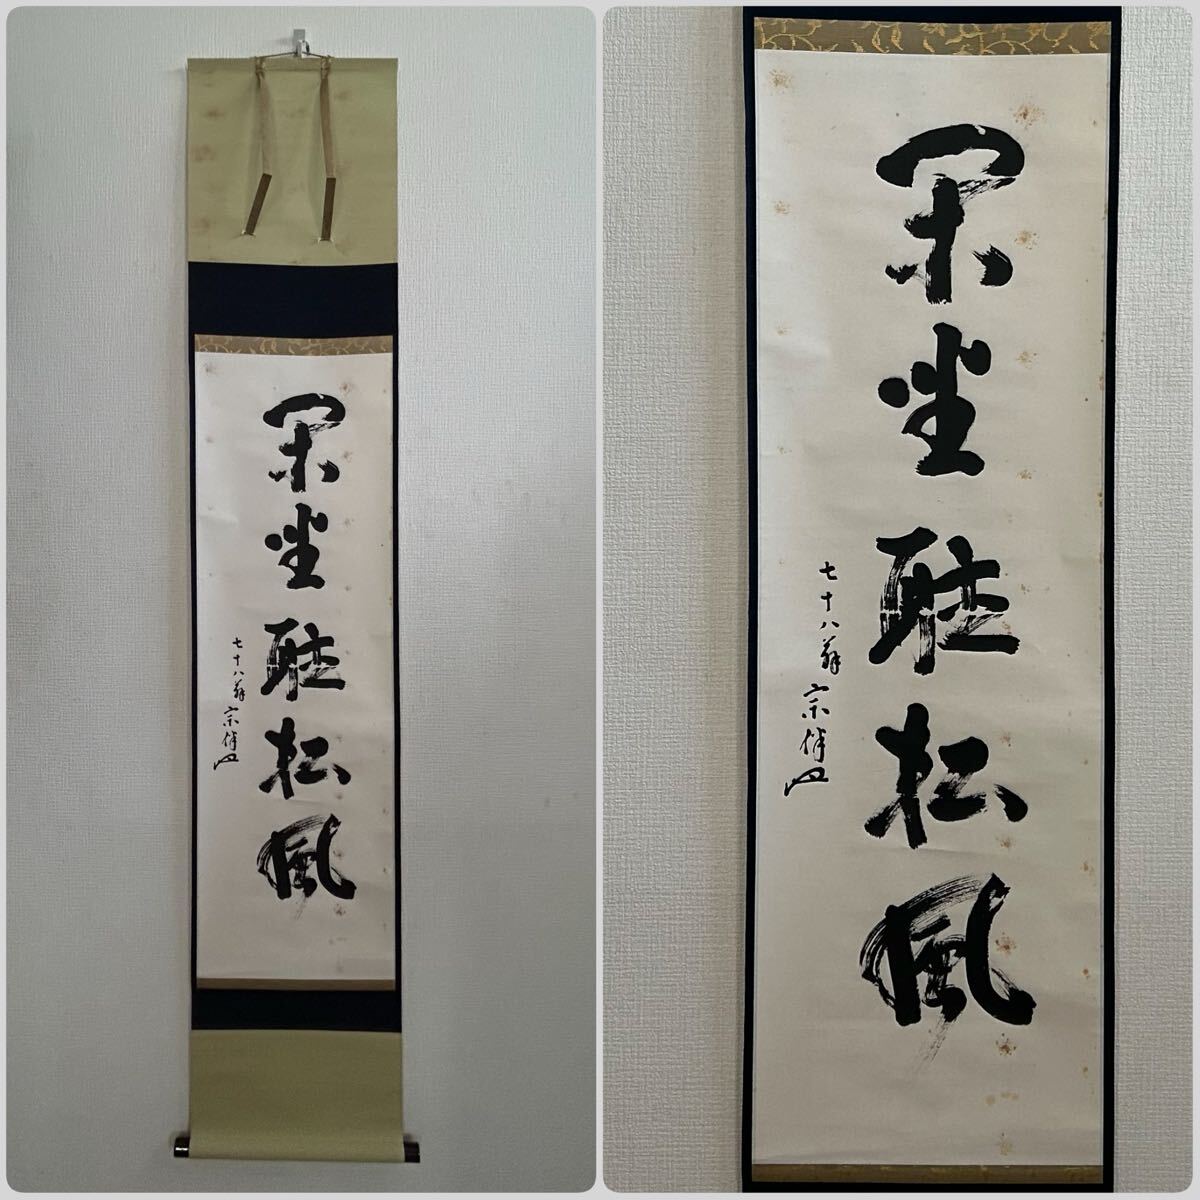 閑坐聴松風
七十八翁 宗
閑坐聴松風
七十八翁 宗